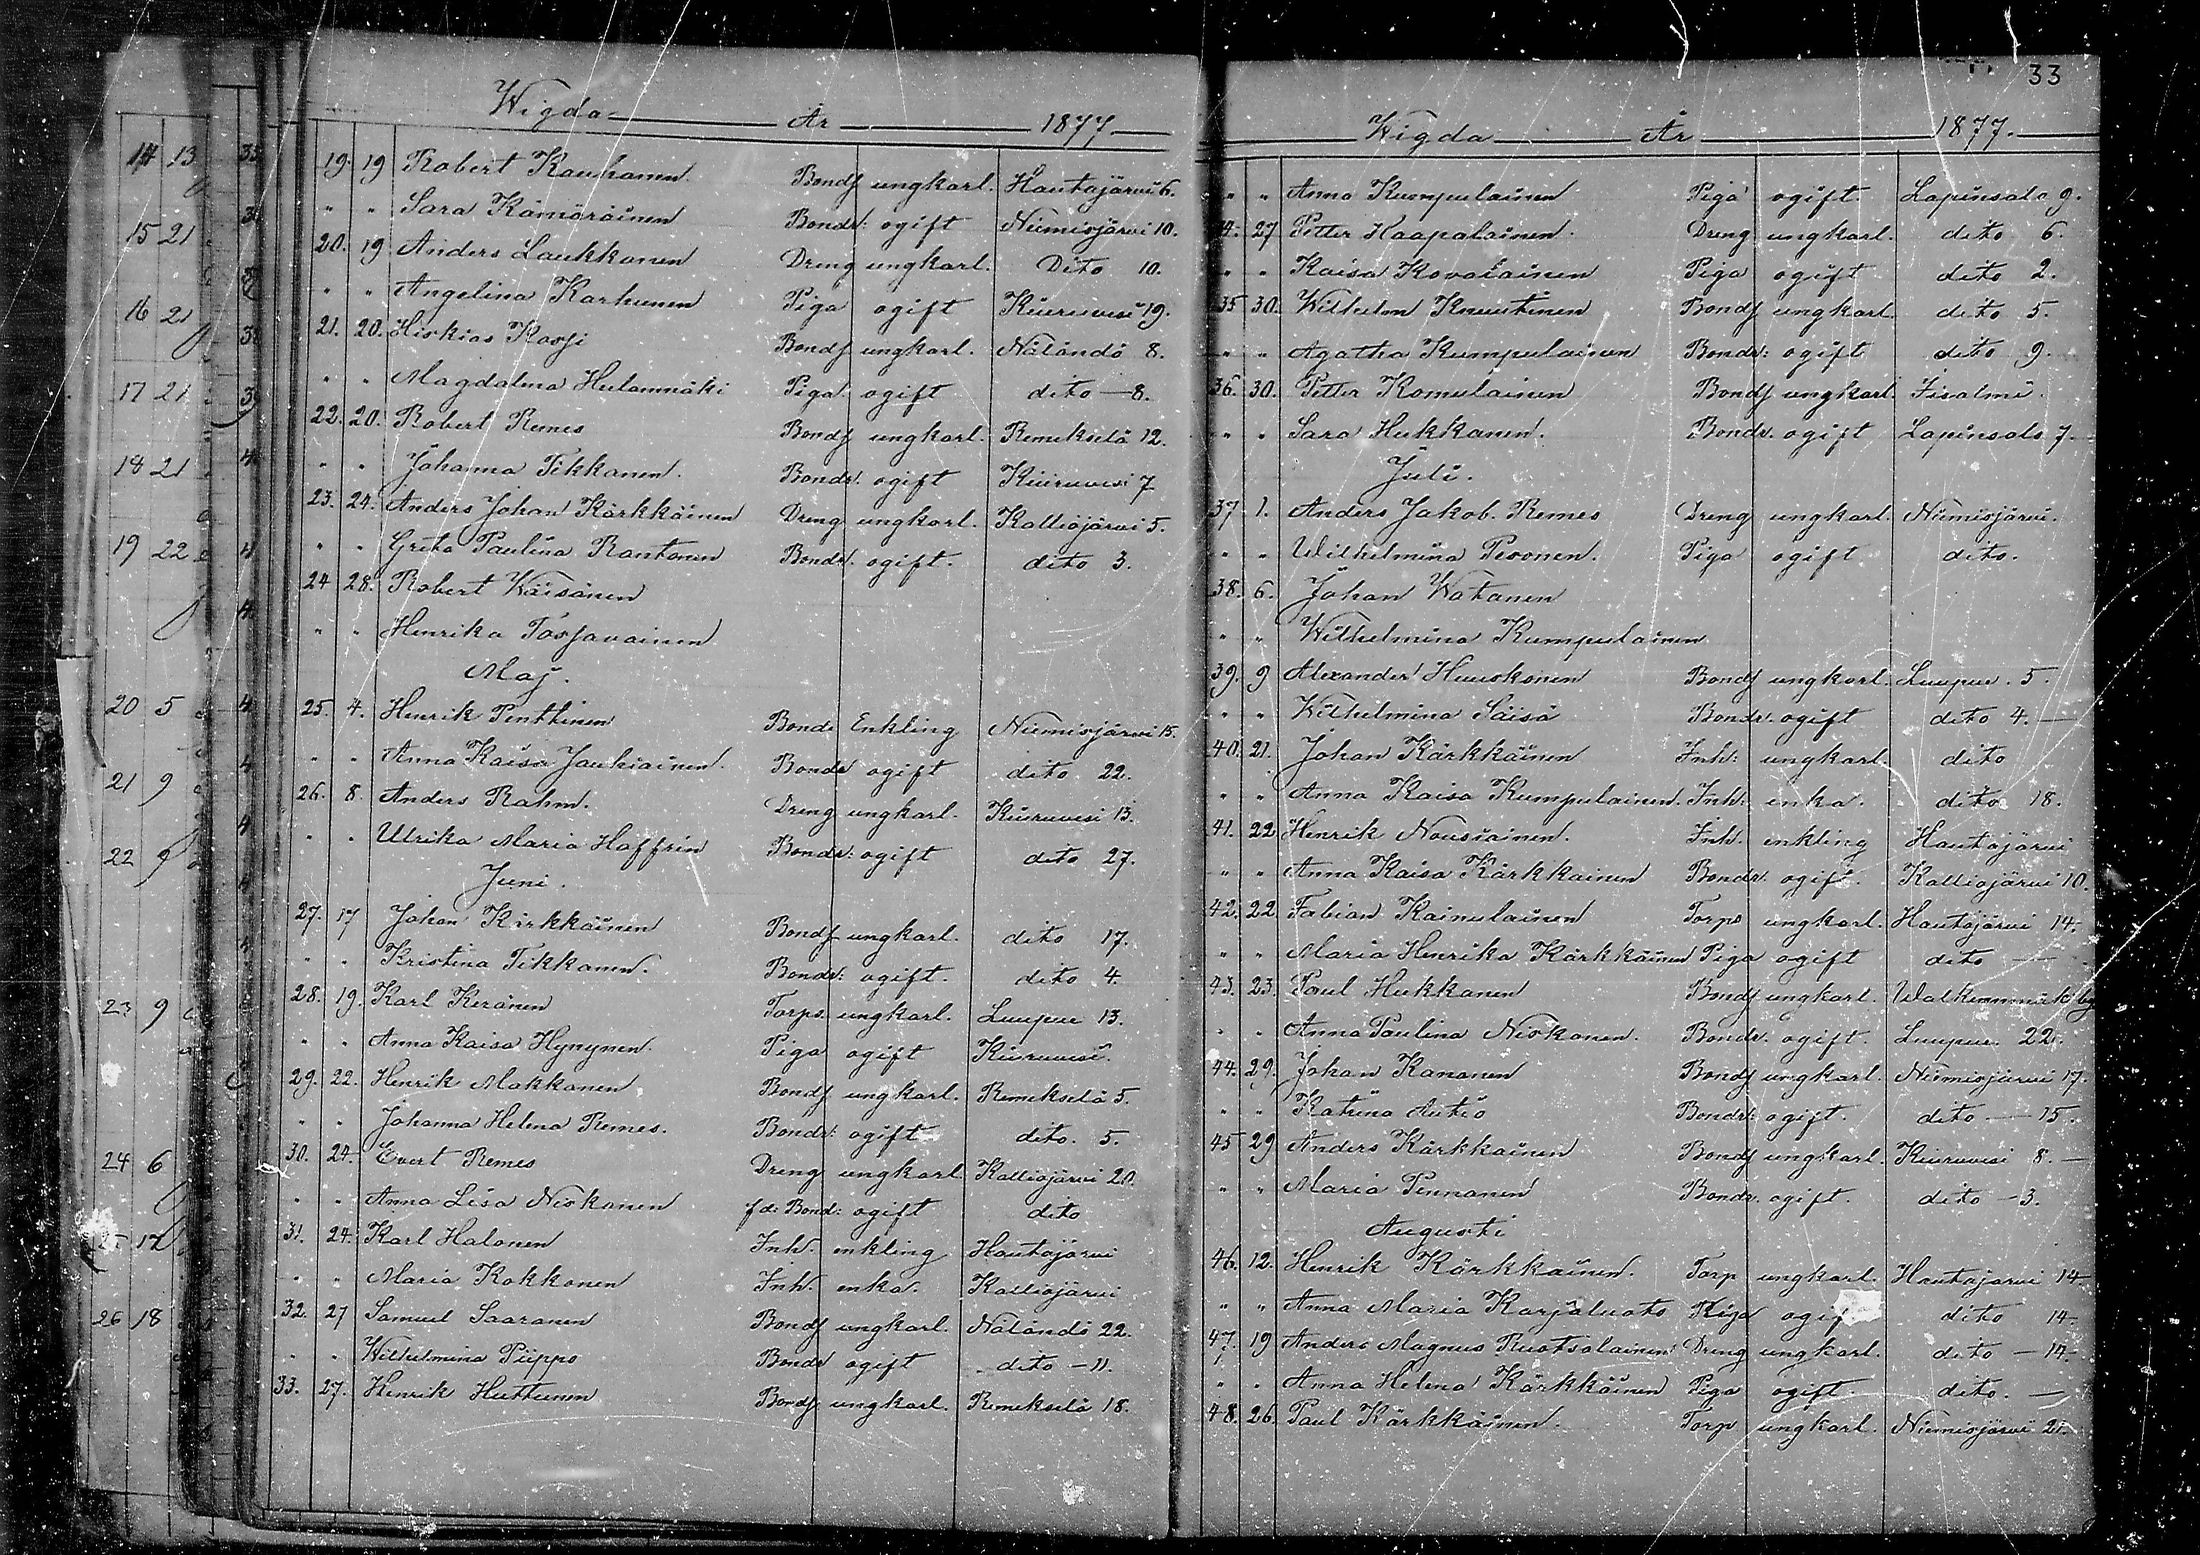 Wigda År 1877
19. 19 Robert Kauhanen Bondf ungkarl. Hautajärvi 6.
" " Sara Kämäräinen Bondr: ogift Niemisjärvi 10.
20. 19. Anders Laukkanen Dreng ungkarl. Dito 10.
" " Angelina Karhunen Piga ogift Kiuruvesi 19.
21. 20. Hiskias Bondf ungkarl. Näländö 8.
" " Magdalena Piga ogift dito 8.
22. 20. Robert Remes Bondf ungkarl. Remekselä 12.
" " Johanna Tikkanen. Bondr. ogift Kiuruvesi 7
23. 24. Anders Johan Kärkkäinen Dreng ungkarl. Kalliojärvi 5.
" " Greta Paulina Rantonen Bondr. ogift. dito 3.
24 28. Robert Wäisänen
" " Henrika Tossavainen
Maj.
25. 4. Henrik Penttinen Bond: Enkling Niemisjärvi 15.
" " Anna Kaisa Jauhiainen. Bondr ogift dito 22.
26. 8. Anders Rahm. Dreng ungkarl. Kiuruvesi 13.
" " Ulrika Maria Hoffrén Bondr: ogift dito 27.
Juni.
27. 17 Johan Kärkkäinen Bondf ungkarl. dito 17.
" " Kristina Tikkanen. Bondr: ogift. dito 4.
28. 19. Karl Keränen Torps ungkarl. Luupue 13.
" " Anna Kaisa Hynynen. Piga ogift Kiuruvesi.
29. 22. Henrik Makkanen Bondf ungkarl. Remekselä 5.
" " Johanna Helena Remes. Bondr: ogift dito. 5.
30. 24. Evert Remes Dreng ungkarl Kalliojärvi 20.
" " Anna Lisa Niskanen f.d: Bond: ogift dito
31. 24. Karl Halonen Inh. enkling Hautajärvi
" " Maria Kokkonen Inh. enka. Kalliojärvi
32. 27 Samuel Saaranen Bondf ungkarl. Näländö 22.
" " Wilhelmina Piippo Bondr ogift dito 11.
33. 27. Henrik Huttunen Bondf ungkarl. Remekselä 18.
14 13
15 21
16 21
17 21
18 21
19 22
20 5
21 9
22 9
23 9
24 6
17
26 18
33
Wigda År 1877.
" " Anna Kumpulainen Piga ogift. Lapinsalo 9.
27 Petter Haapalainen. Dreng ungkarl. dito 6.
" " Kaisa Kovalainen Piga ogift dito 2.
35 30. Wilhelm Knuutinen Bondf ungkarl. dito 5.
" " Agatha Kumpulainen Bondr: ogift dito 9.
36. 30. Petter Komulainen Bondf ungkarl. Iisalmi.
" " Sara Hukkanen. Bondr. ogift Lapinsalo 7.
Juli.
37 1. Anders Jakob. Remes Dreng ungkarl. Niemisjärvi.
" " Wilhelmina Piga ogift dito.
38. 6. Johan Watanen
" " Wilhelmina Kumpulainen
39. 9 Alexander Huuskonen Bondf ungkarl. Luupue. 5.
" " Wilhelmina Säisä Bondr. ogift dito 4.
40. 21. Johan Kärkkäinen Inh: ungkarl. dito
" " Anna Kaisa Kumpulainen. Inh: enka. dito 18.
41. 22 Henrik Nousiainen. Inh. enkling Hautajärvi
" " Anna Kaisa Kärkkainen Bondr. ogift. Kalliojärvi 10.
42. 22 Fabian Kainulainen Torps ungkarl. Hautajärvi 14.
" " Maria Henrika Kärkkäinen Piga ogift dito
43. 23. Paul Hukkanen Bondf ungkarl. Walkemmäki
" " Anna Paulina Niskanen. Bondr. ogift. Luupue. 22.
44. 29. Johan Kananen Bondf ungkarl. Niemisjärvi 17.
" " Katrina Autio Bondr: ogift. dito 15.
45. 29 Anders Kärkkainen Bondf ungkarl. Kiuruvesi 8.
" " Maria Pennanen Bondr. ogift. dito 3.
Augusti
46. 12. Henrik Kärkkäinen. Torp ungkarl. Hautajarvi 14
" " Anna Maria Karjaluoto Piga ogif dito 14.
47. 19 Anders Magnus Ruotsalainen Dreng ungkarl. dito 14.
" " Anna Helena Kärkkäinen Piga ogift dito.
48. 26. Paul Kärkkäinen. Torp ungkarl. Niemisjärvi 21.